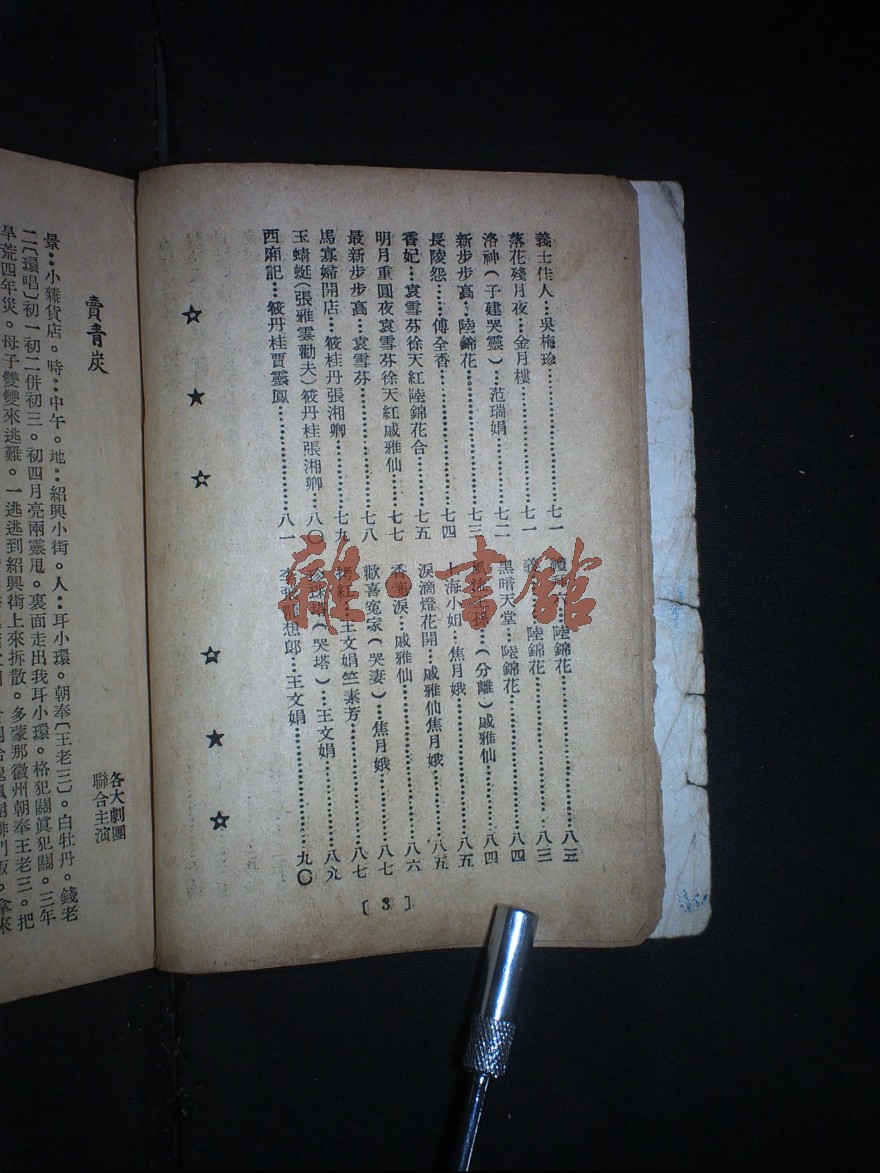 義士佳人…吳梅珍……七一
落花殘月夜…金月樓……七一
洛神(子建哭靈)…范瑞娟……七二
新步步高…陸錦花……七三
長陵怨……傅全香……七四
香妃…袁雪芬徐天紅陸錦花合……七五
明月重圓夜袁雪芬徐天紅戚雅仙……七七
最新步步高…袁雪芬……七八
馬寡婦開店…筱桂丹張湘卿……七九
玉蜻蜓(張雅雲勸夫)筱丹桂張湘卿…八〇
西廂記…筱丹桂賈靈鳳……八一
陸錦花……八三
陸錦花……八三
黑暗天堂…陸錦花……八四
(分離)戚雅仙……八四
上海小姐…焦月娥……八五
淚滴燈花開…戚雅仙焦月娥……八五
香 淚…戚雅仙……八六
歡喜冤家(哭妻)…焦月娥……八七
紅…王文娟竺素芳……八七
珍珠塔(哭塔)…王文娟……八九
想郎…王文娟……九〇
[3]
雜·書館
賣青炭
各大劇團
聯合主演
景…小雜貨店。時…中午。地…紹興小街。人…耳小環。朝奉〔王老三〕。白牡丹。錢老
二〔環唱〕初一初二併初三。初四月亮兩靈甩。裏面走出我耳小環。格犯關眞犯關。三年
旱荒四年災。母子雙雙來逃難。一逃逃到紹興街上來拆散。多蒙那徽州朝奉王老三。把